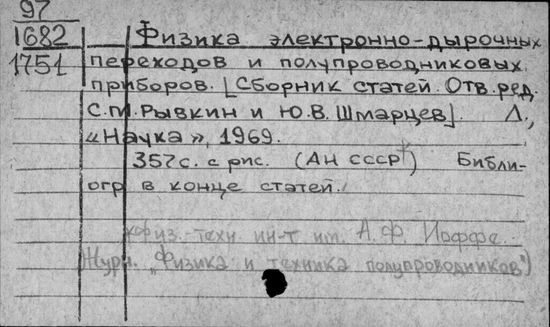 97
1682
1751
Физика электронно-дырочных
переходов и полупроводниковых
приборов. [Сборник статей. Отв. ред.
С.М. Рывкин и Ю.В. Шмарцев]. Л.,
«Наука», 1969.
357с. с рис. (АН СССР) Библи-
огр в конце статей.
Физ.-техн. ин-т им. А.Ф. Иоффе.
Журн. „Физика и техника полупроводников")